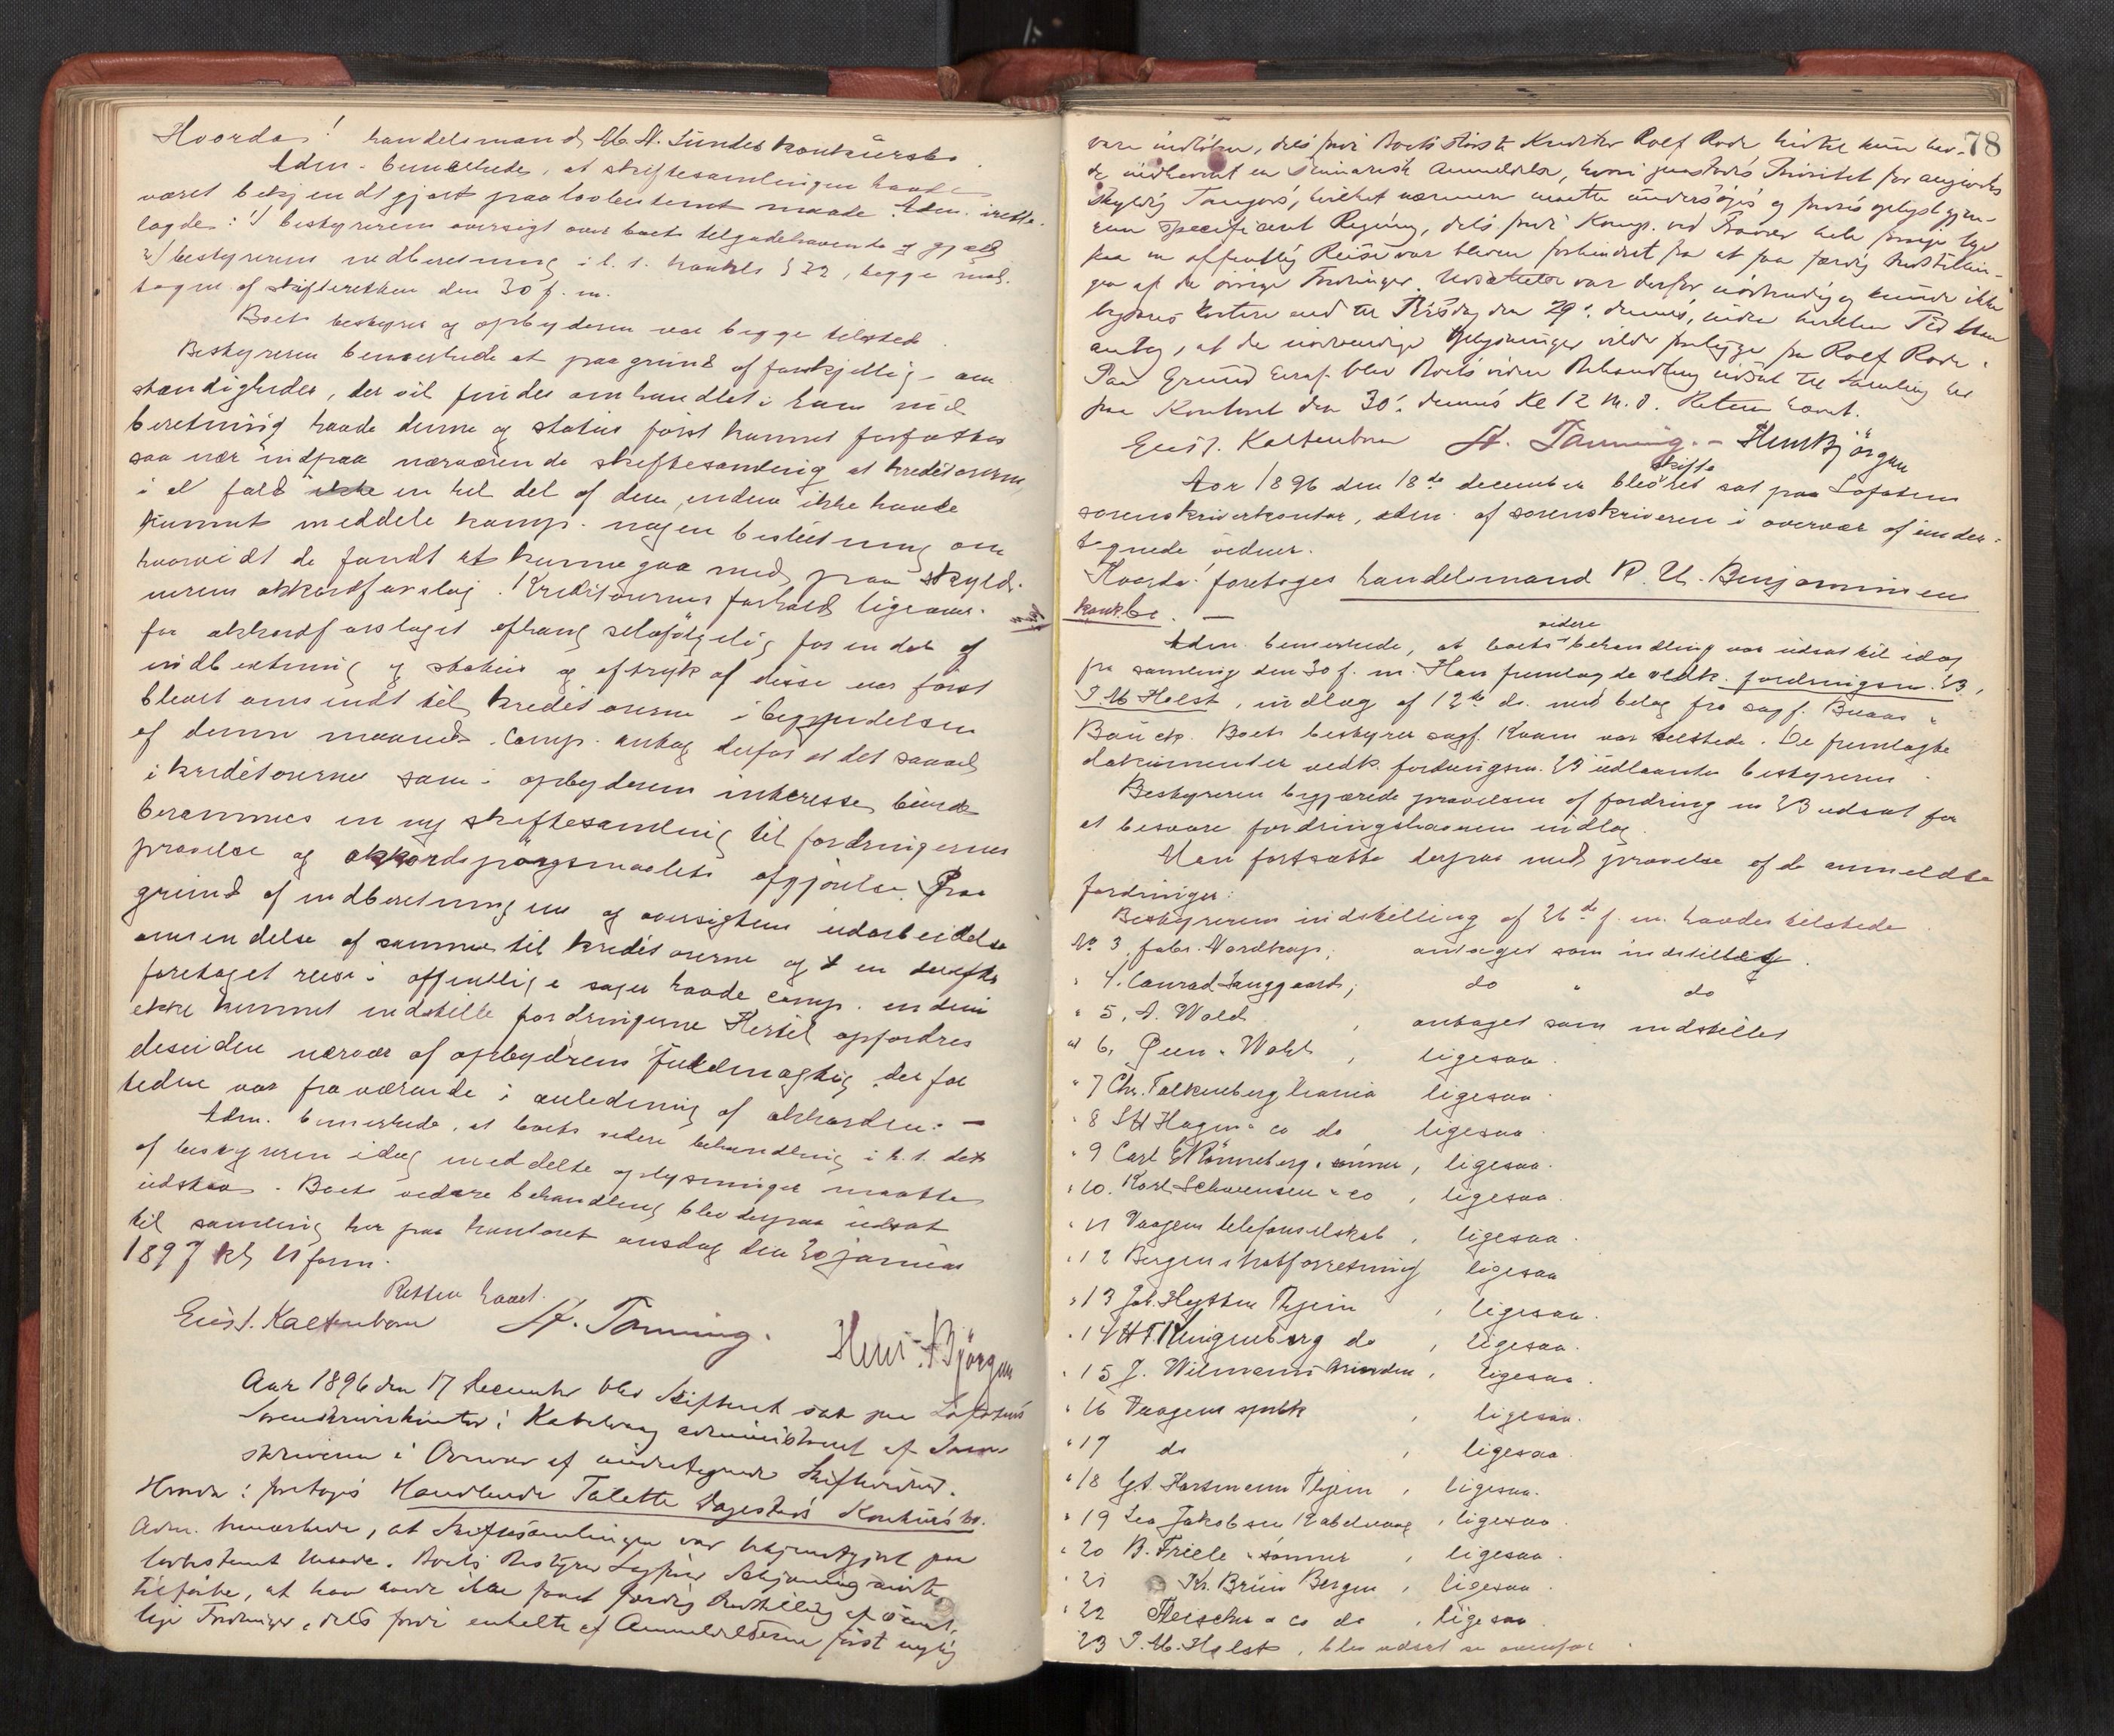 Hvorda! handelsmand M. A. Sundes konkursbo.
Adm. bemærkede, at skiftesamlingen havde
været bekjendtgjort paa lovbestemt maade. Adm. irette-
lagde: 1) bestyrerens oversigt over boets tilgodehavende og gjæld
2) bestyrerens indberetning i h. t. konkl. § 22, begge mod-
tagne af skifteretten den 30 f. m.
Boets bestyrer og opbyderen var begge tilstede.
Bestyreren bemærkede at paa grund af forskjellige om
stændigheder, der vil findes omhandlet i hans ind
beretning havde denne og status først kunnet forfattes
saa nær indpaa nærværende skiftesamling at kreditorerne,
i al fald en hel del af dem, endnu ikke havde
kunnet meddele komp. nogen beslutning om
hvorvidt de fandt at kunne gaa med paa skyld-
nerens akkordforslag. Kreditorernes forhold ligeover-
for akkordforslaget afhang selvfølgelig for en del af
indberetning og status og aftryk af disse var først
blevet omsendt til kreditorerne i begyndelsen
af denne maaned. Comp. antog derfor at det saavel
i kreditorernes som i opbyderens interesse burde
berammes en ny skiftesamling til fordringernes
prøvelse og akkordspørgsmaalets afgjørelse. Paa
grund af indberetningens og oversigtens udarbeidelse
omsendelse af samme til kreditorerne og en derefter
foretaget reise i offentlige sager havde comp. endnu
ikke kunnet indstille fordringerne. Hertil opfordres
desuden nærvær af opbyderens fuldmægtig, der for
tiden var fraværende i anledning af akkorden. —
Adm. bemærkede, at boets videre behandling i h. t. det
af bestyreren idag meddelte oplysninger maatte
udstaa. Boets videre behandling blev derpaa udsat
til samling her paa kontoret onsdag den 20 januar
1897 kl 11 form.
Retten hævet.
Eust. Kaltenborn A. Tanning. Henr. Bjørgan
Aar 1896 den 17 December blev Skifteret sat paa Lofotens
Sorenskriverkontor i Kabelvaag administreret af Soren-
skriveren i Overvær af undertegnede Skiftevidner.
Hvorda: foretoges Handlende Tolette Dagestads Konkursbo.
Adm. bemærkede, at Skiftesamlingen var bekjendtgjort paa
lovbestemt Maade. Boets Bestyrer Sagfører
tilførte, at han havde ikke faaet færdig Indstilling af samt-
lige Fordringer, dels fordi enkelte af Anmeldelserne først nylig
78
vare indløbne, dels fordi Boets største Kreditor Rolf Rode hidtil kun hav-
de indleveret en summarisk Anmeldelse, hvori paastodes Prioritet for angivelig
skyldig Tangors, hvilket nærmere maatte undersøges og forsøges oplyst gjen-
nem specificeret Regning, dels fordi Komp. ved Travær hele forrige Uge
paa en offentlig Reise var bleven forhindret fra at faa færdig Indstillin-
gen af de øvrige Fordringer. Udsættelse var derfor nødvendig og kunde ikke
begjæres kortere end til Tirsdag den 29. dennes, inden hvilken Tid han
antog, at de nødvendige Oplysninger vilde foreligge fra Rolf Rode.
Paa Grund heraf blev Boets videre Behandling udsat til Samling her
paa Kontoret den 30. dennes Kl 12 M. D. Retten hævet.
Eust. Kaltenborn A. Tanning. — Henr Bjørgan
Aar 1896 den 18de december blev skifteret sat paa Lofotens
sorenskriverkontor, adm. af sorenskriveren i overvær af under-
tegnede vidner.
Hvorda: foretoges handelsmand R. U. Benjaminsens
konk.bo. —
Adm. bemærkede, at boets videre behandling var udsat til idag
fra samling den 30 f. m. Han fremlagde vedk. fordringsn. 23,
P. M Holst, indlæg af 12te ds. med bilag fra sagf. Buaas &
Bauck. Boets bestyrer sagf. Kvam var tilstede. De fremlagte
dokumenter vedk. fordringsn. 23 udlaantes bestyreren.
Bestyreren begjærede prøvelsen af fordring no 23 udsat for
at besvare fordringshaverens indlæg.
Man fortsatte derpaa med prøvelse af de anmeldte
fordringer:
Bestyrerens indstilling af 26de f. m. havdes tilstede.
No 3, fabr. Nordkap, antaget som indstillet.
" 4. Conrad Langgaard, do " do
" 5, A. Wold, antaget som indstillet
" 6, Gunn. Wold, ligesaa.
" 7 Chr. Falkenberg Xrania ligesaa.
" 8 S H Hagen & co do ligesaa.
" 9 Carl E Rønneberg & sønner, ligesaa.
" 10. Karl Schwensen & co, ligesaa.
" 11 Vaagens telefonselskab, ligesaa.
" 12 Bergens hatforretning ligesaa
" 13 Joh. Heftten Thjem, ligesaa.
" 14 H F Klingenberg do, ligesaa.
" 15 J. Wilmann Arendm, ligesaa.
" 16 Vaagens spbk, ligesaa.
" 17 do, ligesaa.
" 18 Gst. Hartmann Thjem, ligesaa.
" 19 Lea Jakobsen Kabelvaag, ligesaa.
" 20 B. Friele & sønner, ligesaa.
" 21 Kr. Bruun Bergen, ligesaa.
" 22 Fleischer & co do, ligesaa.
23 P. M. Holst, blev udsat se ovenfor.